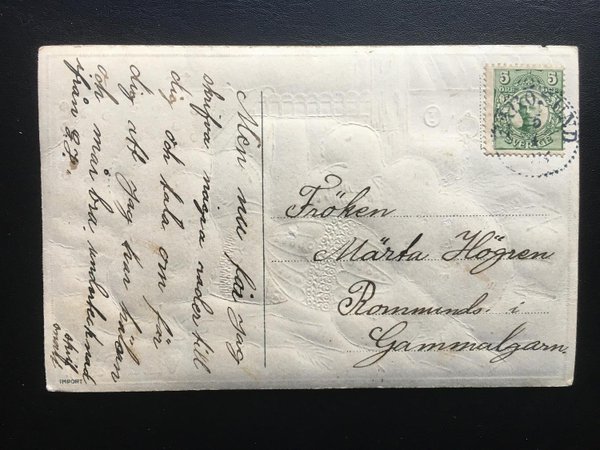 Men nu får jag
skrifva några rader till
dig och tala om för
dig att jag har hälsan
och mår bra. undertecknad
ifrån
skrif
IMPORT
5 5
ÖRE
SVERIGE
Fröken
Märta Högren
Rommunds i
Gammalgarn